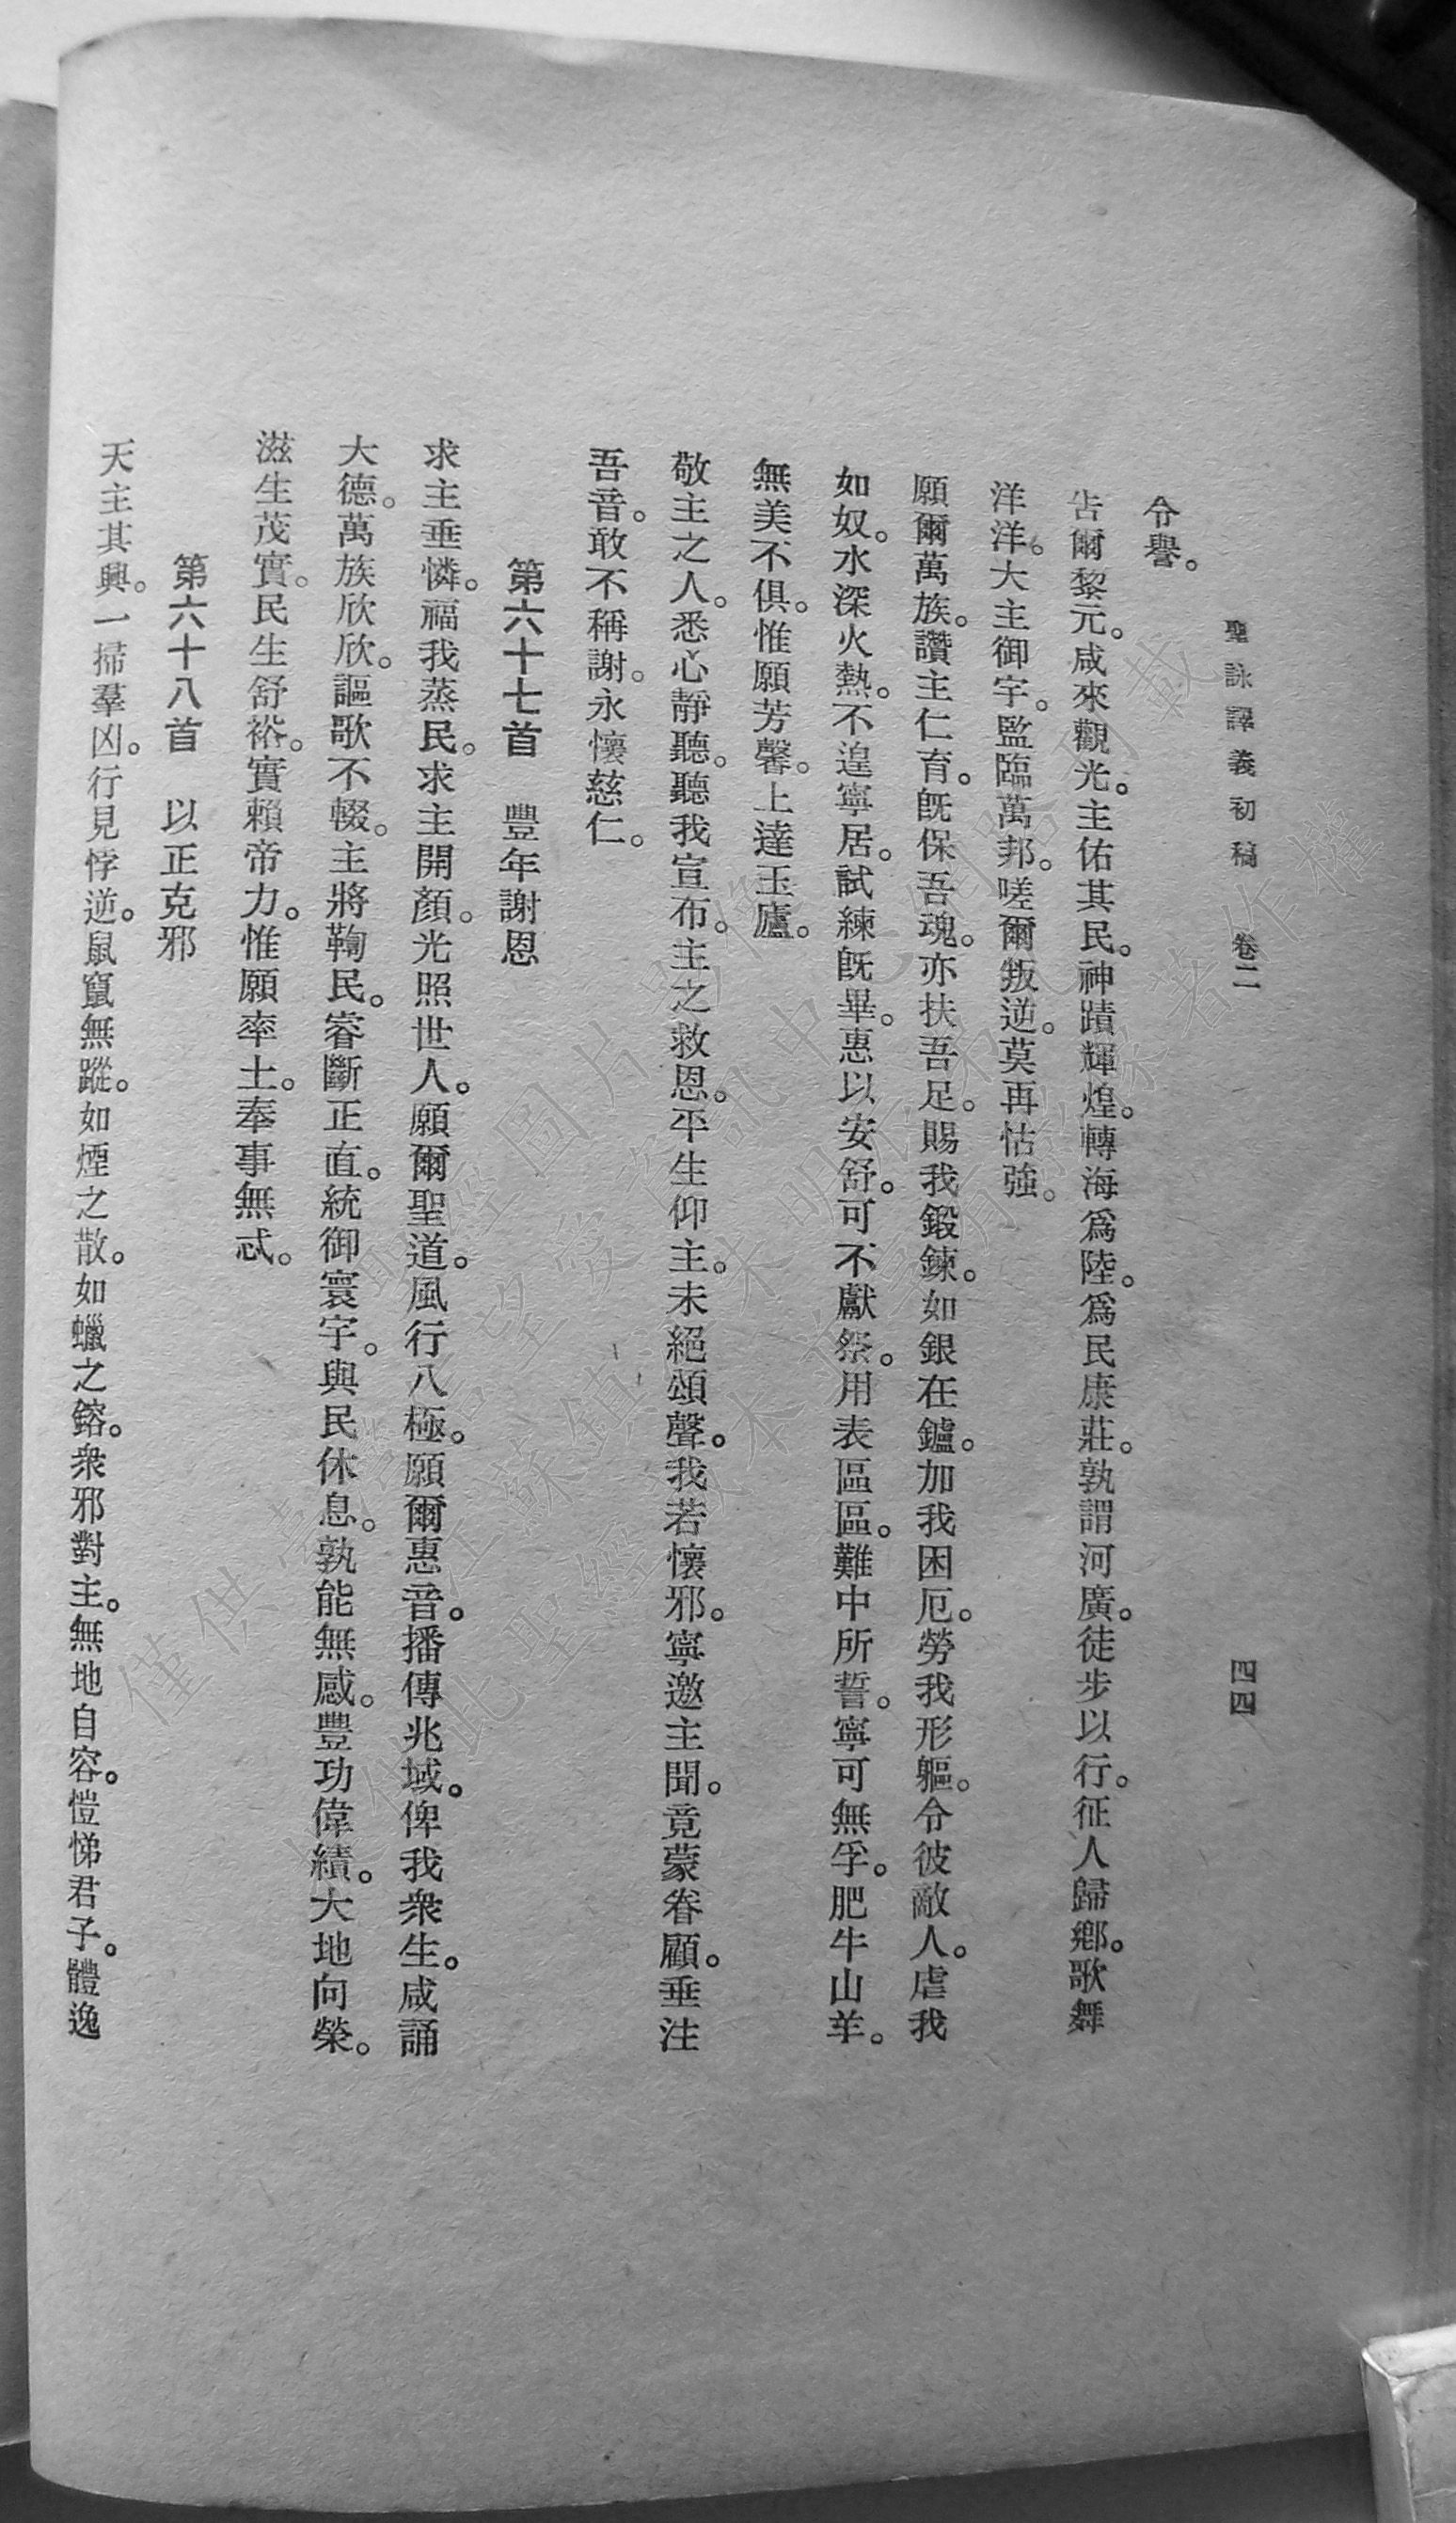 聖詠譯義初稿 卷二 四四
令譽。
告爾黎元。咸來觀光。主佑其民。神蹟輝煌。轉海爲陸。爲民康莊。孰謂河廣。徒步以行。征人歸鄉。歌舞
洋洋。大主御宇。監臨萬邦。嗟爾叛逆。莫再怙強。
願爾萬族。讚主仁育。旣保吾魂。亦扶吾足。賜我鍛鍊。如銀在鑪。加我困厄。勞我形軀。令彼敵人。虐我
如奴。水深火熱。不遑寧居。試練旣畢。惠以安舒。可不獻祭。用表區區。難中所誓。寧可無孚。肥牛山羊。
無美不俱。惟願芳馨。上達玉廬。
敬主之人。悉心靜聽。聽我宣布。主之救恩。平生仰主。未絕頌聲。我若懷邪。寧邀主聞。竟蒙眷顧。垂注
吾音。敢不稱謝。永懷慈仁。
第六十七首 豐年謝恩
求主垂憐。福我蒸民。求主開顏。光照世人。願爾聖道。風行八極。願爾惠音。播傳兆域。俾我衆生。咸誦
大德。萬族欣欣。謳歌不輟。主將鞫民。睿斷正直。統御寰宇。與民休息。孰能無感。豐功偉績。大地向榮。
滋生茂實。民生舒裕。實賴帝力。惟願率土。奉事無忒。
第六十八首 以正克邪
天主其興。一掃羣凶。行見悖逆。鼠竄無蹤。如煙之散。如蠟之鎔。衆邪對主。無地自容。愷悌君子。體逸